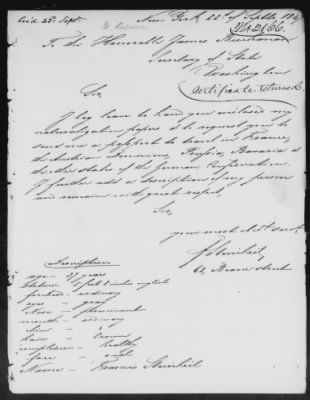 Rec'd 25th Sept.
New York 22d of Septbr 184
No 2166.
To the Honorable James Buchanan
Secretary of State
Washington
Certificate returned
Sir,
I beg leave to hand you enclosed my
naturalization papers & to request you to
send me a passport to travel in France,
the Austrian Dominions, Prussia, Bavaria &
the other states of the German Confederation.
I further add a description of my person
and remain with great respect,
Sir,
your most obdt servt.
62 Beaver Street
Description
age - 37 years
Stature - 5 feet 2 inches english
forehead - ordinary
eyes - gray
Nose - prominent
mouth - ordinary
chin -
hair - brown
complexion - healthy
face - oval
Name - Francis